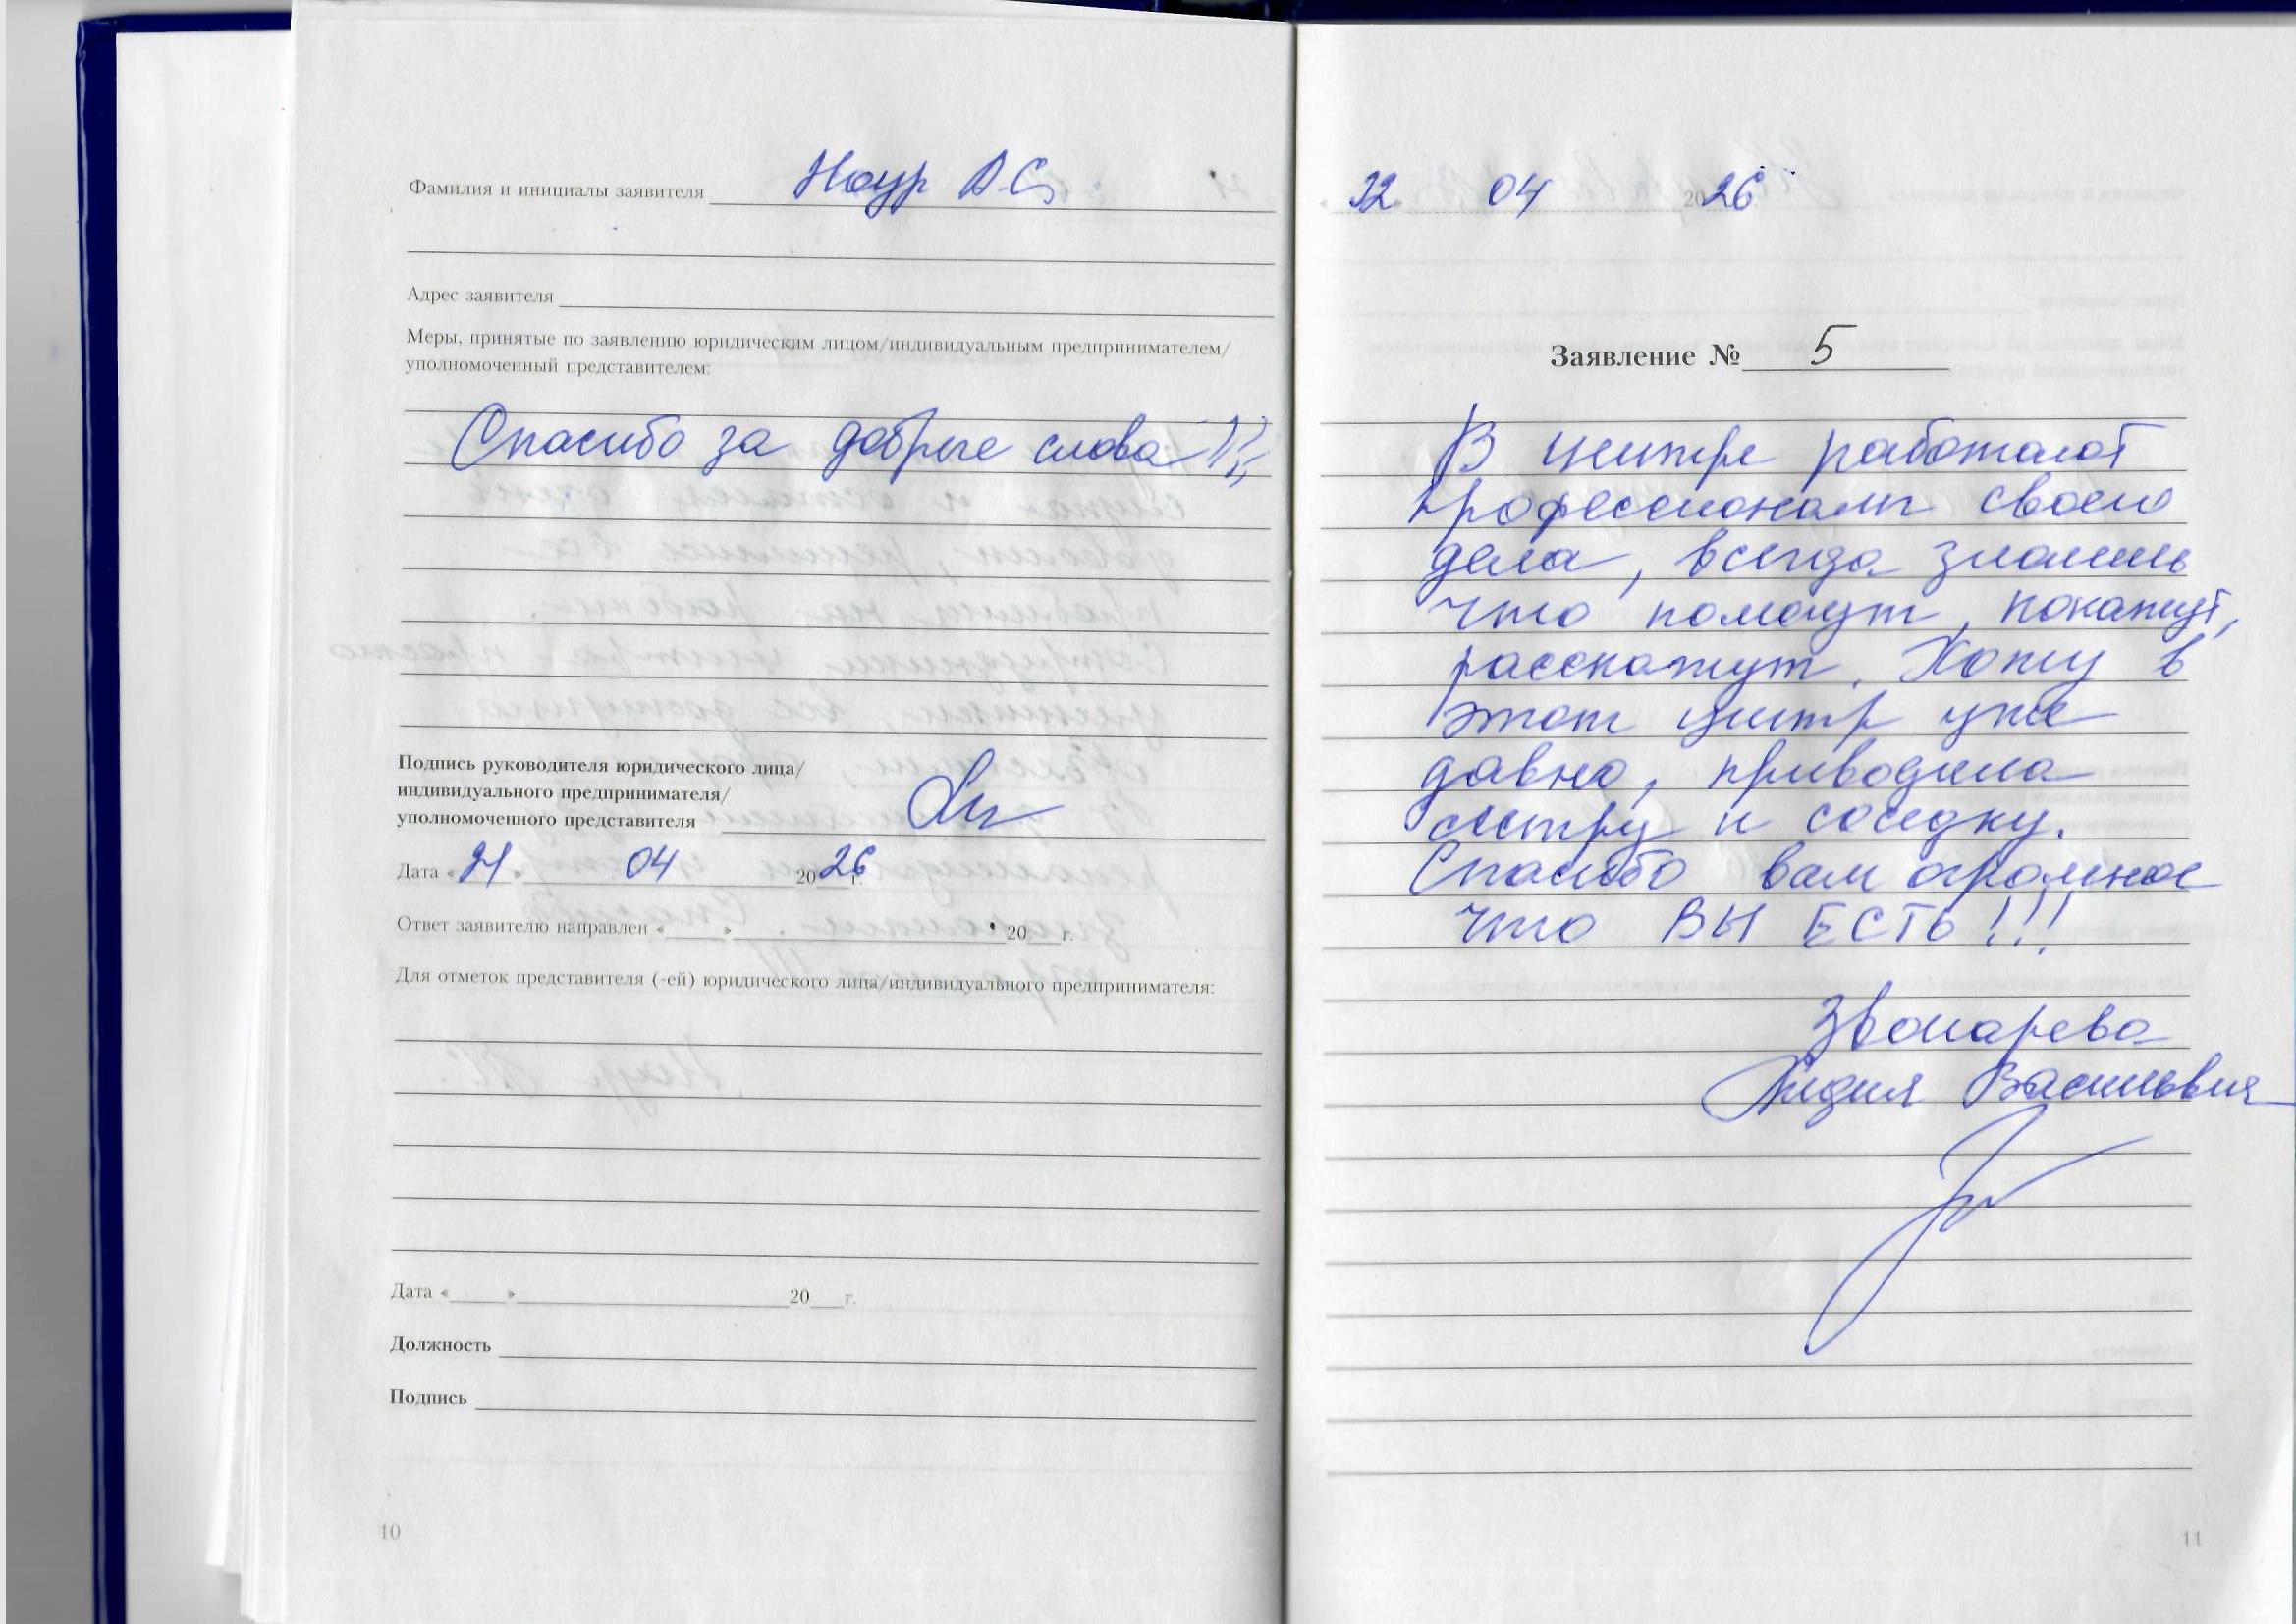 Фамилия и инициалы заявителя Наур А.С.
Адрес заявителя
Меры, принятые по заявлению юридическим лицом/индивидуальным предпринимателем/
уполномоченный представителем:
Спасибо за добрые слова!!!
Подпись руководителя юридического лица/
индивидуального предпринимателя/
уполномоченного представителя
Дата «21» 04 2026 г.
Ответ заявителю направлен «____» 20___ г.
Для отметок представителя (-ей) юридического лица/индивидуального предпринимателя:
Дата «____» 20___г.
Должность
Подпись
10
22 04 2026
Заявление № 5
В центре работают
профессионалы своего
дела, всегда знаешь
что помогут, покажут,
расскажут. Хожу в
этот центр уже
давно, приводила
сестру и соседку.
Спасибо вам огромное
что ВЫ ЕСТЬ!!!
Звонарева
Лидия Васильевна
11